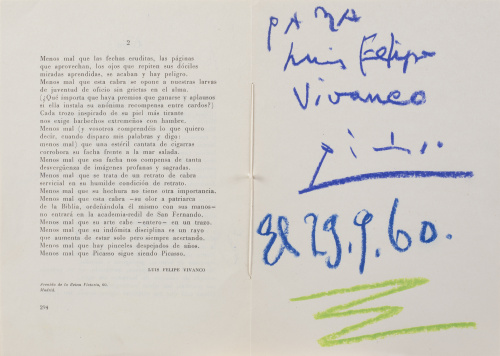 2
Menos mal que las fechas eruditas, las páginas
que aprovechan, los ojos que repiten sus dóciles
miradas aprendidas, se acaban y hay peligro.
Menos mal que esta cabra se opone a nuestras larvas
de juventud de oficio sin grietas en el alma.
(¿Qué importa que haya premios que ganarse y aplausos
si ella instala su anónima recompensa entre cardos?)
Cada trozo inspirado de su piel más tirante
nos exige barbechos extremeños con hambre.
Menos mal (y vosotros comprendéis lo que quiero
decir, cuando disparo mis palabras y digo:
menos mal) que una estéril cantata de cigarras
corrobora su facha frente a la mar salada.
Menos mal que esa facha nos compensa de tanta
desvergüenza de imágenes profanas y sagradas.
Menos mal que se trata de un retrato de cabra
servicial en su humilde condición de retrato.
Menos mal que su hechura no tiene otra importancia.
Menos mal que esta cabra —su olor a patriarca
de la Biblia, ordeñándola él mismo con sus manos—
no entrará en la academia-redil de San Fernando.
Menos mal que su arte cabe —entero— en un trozo.
Menos mal que su indómita disciplina es un rayo
que aumenta de estar solo pero siempre acertando.
Menos mal que hay pinceles despejados de años.
Menos mal que Picasso sigue siendo Picasso.
LUIS FELIPE VIVANCO
Avenida de la Reina Victoria, 60.
Madrid.
294
PARA
Luis Felipe
Vivanco
Picasso
El 29.9.60.